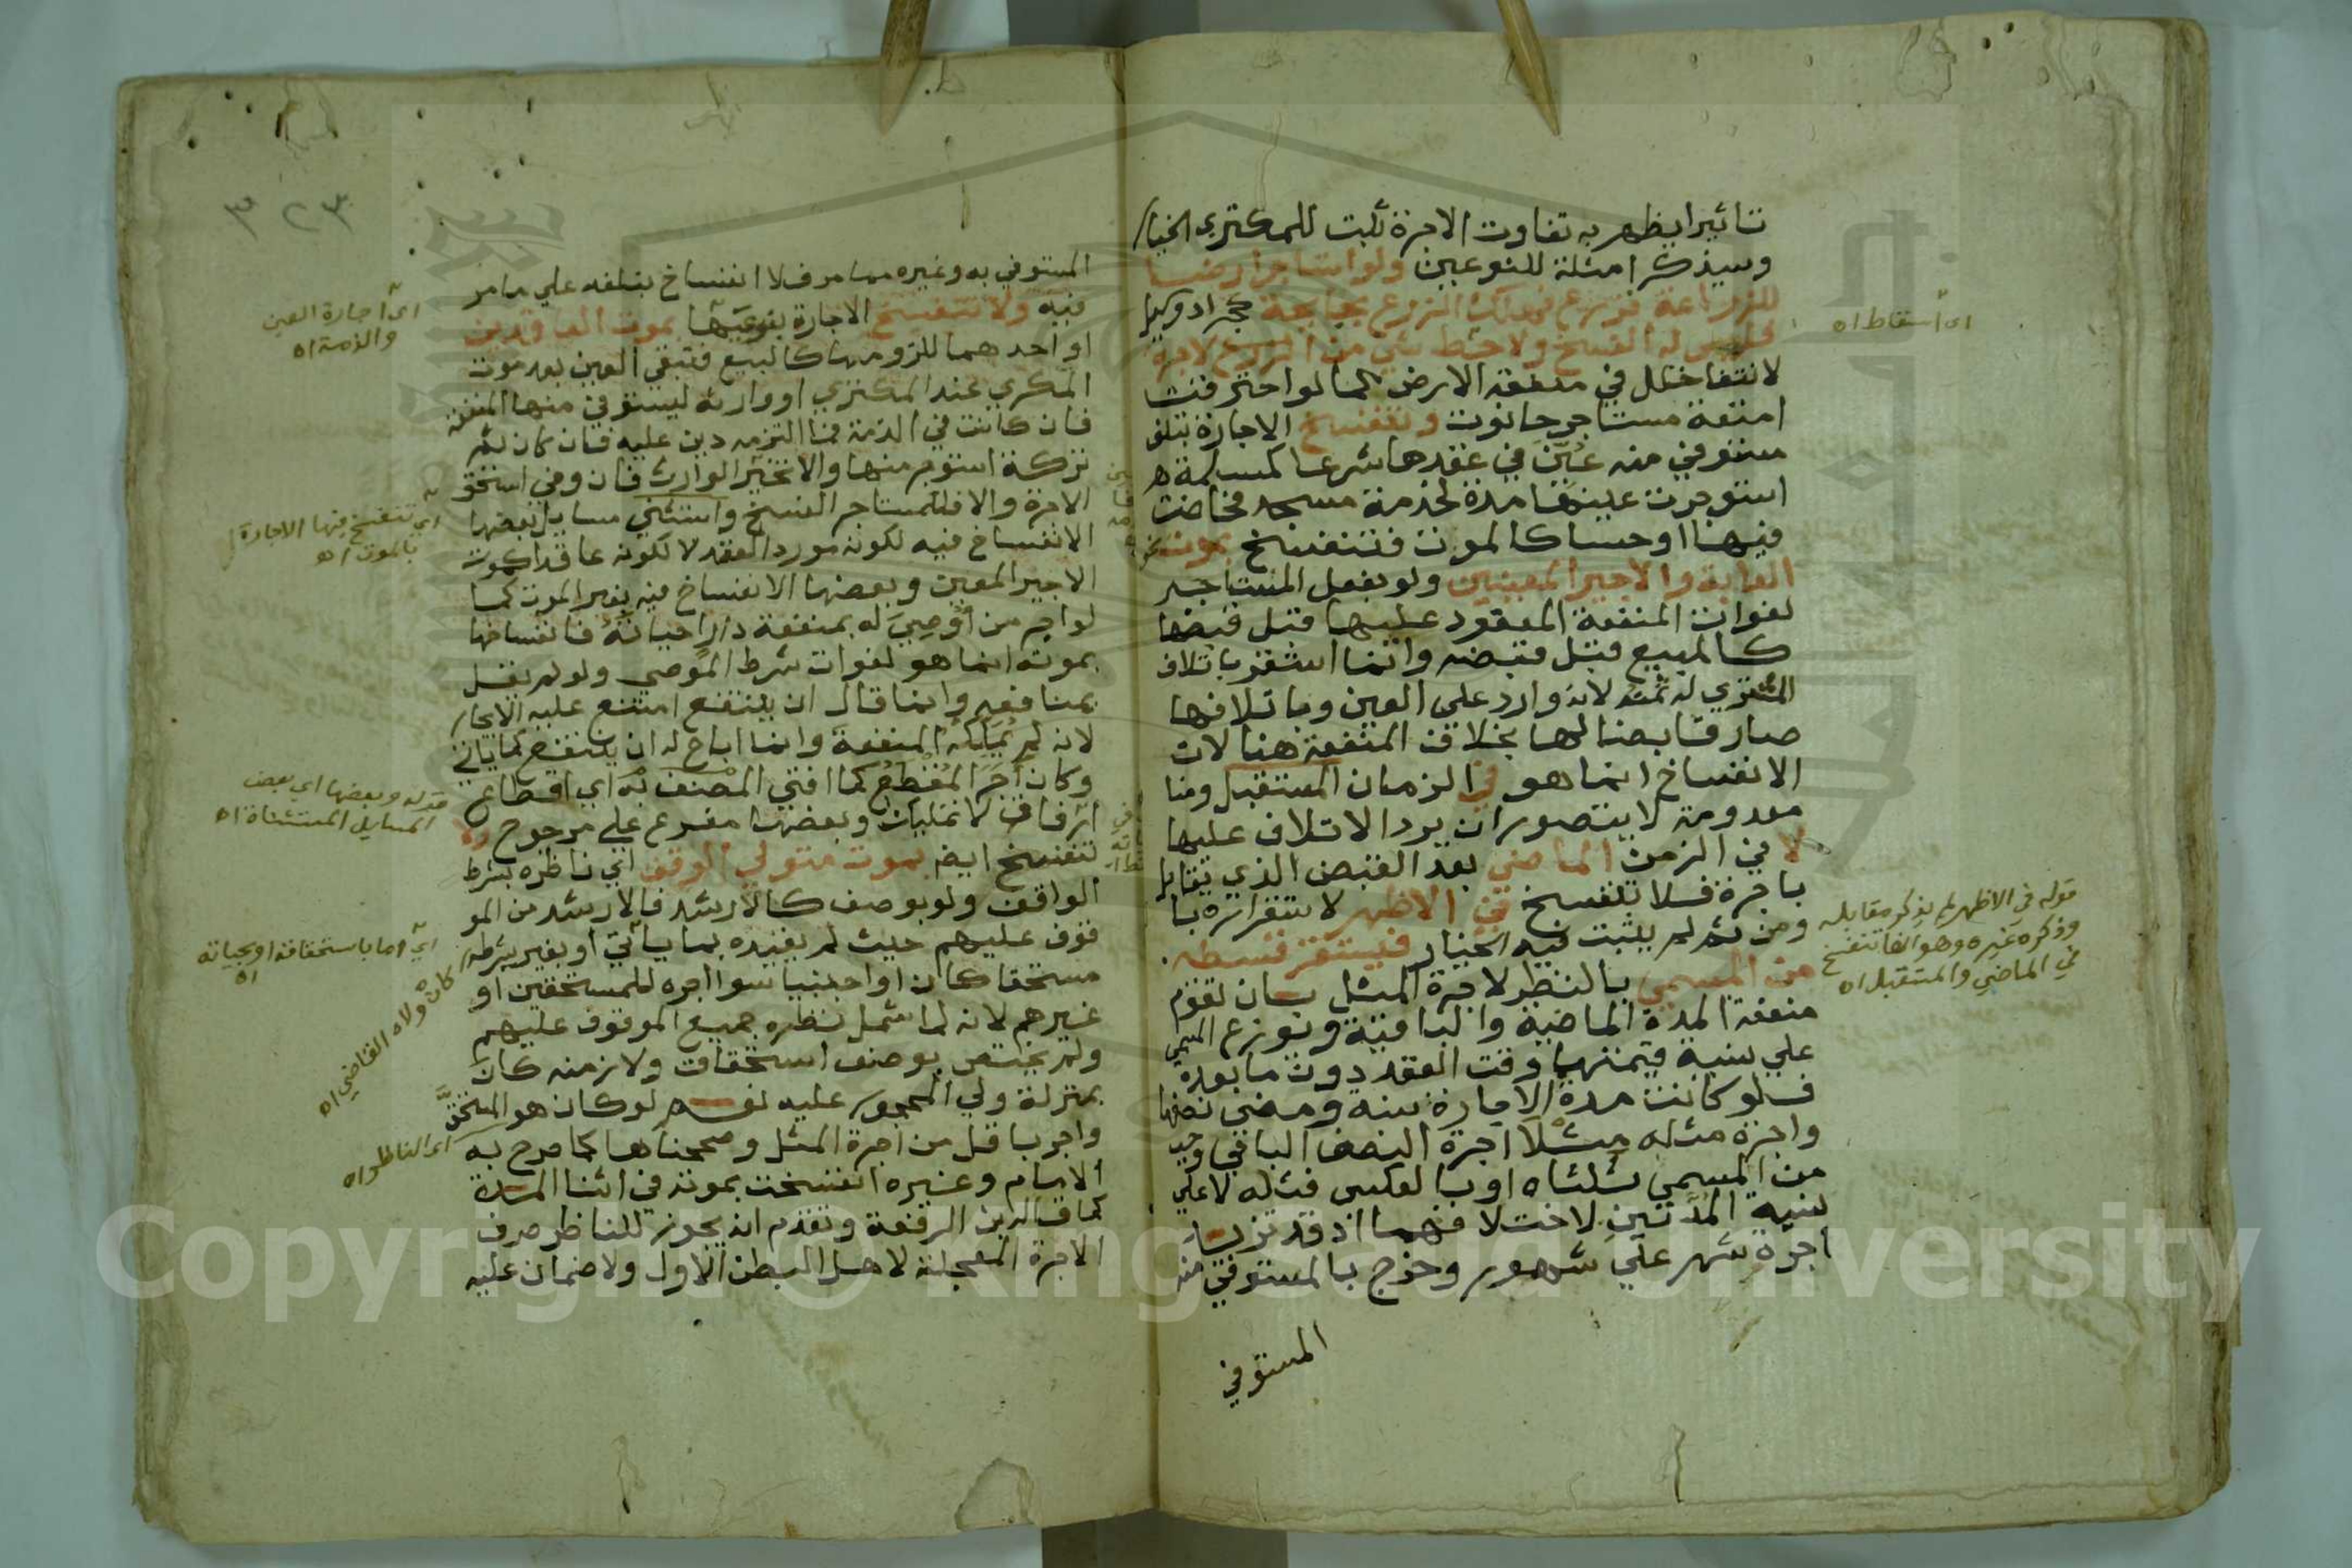 تاثيرا يظهر به تفاوت الاجرة ثبت للمكتري الخيار
وسيذكر امثلة للنوعين ولو استاجر ارضا
للزراعة فزرع فهلك الزرع بجايحة كجراد وكير
فليس له الفسخ ولا حط شي من الزرع لاجرة
لانتفا خلل في منفعة الارض كما لو احترقت
امتعة مستاجر حانوت وتنفسخ الاجارة بتلف
مستوفي منه عين في عقدها شرعا كمسلمة
استوجرت عينها مدة لخدمة مسجد فحاضت
فيها او حسا كالموت فتنفسخ بموت
الدابة والاجير المعينين ولو بفعل المستاجر
لفوات المنفعة المعقود عليها قبل قبضها
كالمبيع قبل قبضه وانما استقر باتلاف
المشتري له ثمنه لانه وارد علي العين وباتلافها
صار قابضا لها بخلاف المنفعة هنا لان
الانفساخ انما هو في الزمان المستقبل ومنا
معدومة لا يتصور ان يرد الاتلاف عليها
لا في الزمن الماضي بعد القبض الذي يقابل
باجرة فلا تنفسخ في الاظهر لاستقراره با
ومن ثم لم يثبت فيه الخيار فيستقر قسطه
من المسمي بالنظر لاجرة المثل بان تقوم
منفعة المدة الماضية والباقية ويوزع المسمي
علي نسبة قيمتهما وقت العقد دون ما بعده
فلو كانت مدة الاجارة سنة ومضي نصفها
واجرة مثله مثلا اجرة النصف الباقي وجب
من المسمي ثلثاه او بالعكس فثلثه لا علي
نسبة المدتين لاختلافهما اذ قد تزيد
اجرة شهر علي شهور وخرج بالمستوفي منه
المستوفي
اي اسقاط اه
قوله في الاظهر لم يذكر مقابله
وذكره غيره وهو انها تنفسخ
في الماضي والمستقبل اه
المستوفي به وغيره مما مر فلا انفساخ بتلفه علي ما مر
فيه ولا تنفسخ الاجارة بنوعيها بموت العاقدين
او احدهما للزومها كالبيع فتبقي العين بعد موت
المكري عند المكتري او وارثه ليستوفي منها المنفعة
فان كانت في الذمة فما التزمه دين عليه فان كان ثم
تركة استوجر منها والا تخير الوارث فان وفي استحق
الاجرة والا فللمستاجر الفسخ واستثني مسايل بعضها
الانفساخ فيه لكونه مورد العقد لا لكونه عاقدا كموت
الاجير المعين وبعضها الانفساخ فيه بغير الموت كما
لو اجر من اوصي له بمنفعة دار حياته فانفساخها
بموته انما هو لفوات شرط الموصي ولو لم يقل
بمنافعه وانما قال ان ينتفع امتنع عليه الايجار
لانه لم يملكه المنفعة وانما اباح له ان ينتفع كما ياتي
وكان اجر المقطع كما افتي المصنف به اي اقطاع
ارفاق لا تمليك وبعضها مفرع علي مرجوح ولا
تنفسخ ايضا بموت متولي الوقف اي ناظره بشرط
الواقف ولو بوصف كالارشد فالارشد من المو
قوف عليهم حيث لم يقيده بما ياتي او بغير شرطه
مستحقا كان او اجنبيا سوا اجره للمستحقين او
غيرهم لانه لما شمل نظره جميع الموقوف عليهم
ولم يختص بوصف استحقاق ولا زمنه كان
بمنزلة ولي المحجور عليه نعم لو كان هو المستحق
واجر باقل من اجرة المثل وصححناها كما صرح به
الامام وغيره انفسخت بموته في اثنا المدة
كما قاله ابن الرفعة وتقدم انه يجوز للناظر صرف
الاجرة المعجلة لاهل البطن الاول ولا ضمان عليه
اي اجارة العين
والذمة اه
اي تنفسخ فيها الاجارة
بالموت اه
قوله وبعضها اي بعض
المسايل المستثناة اه
اي اما باستحقاقه او بحياته
اه
كان ولاه القاضي اه
اي الناظر اه
٣٢٣
Copyright © King Saud University